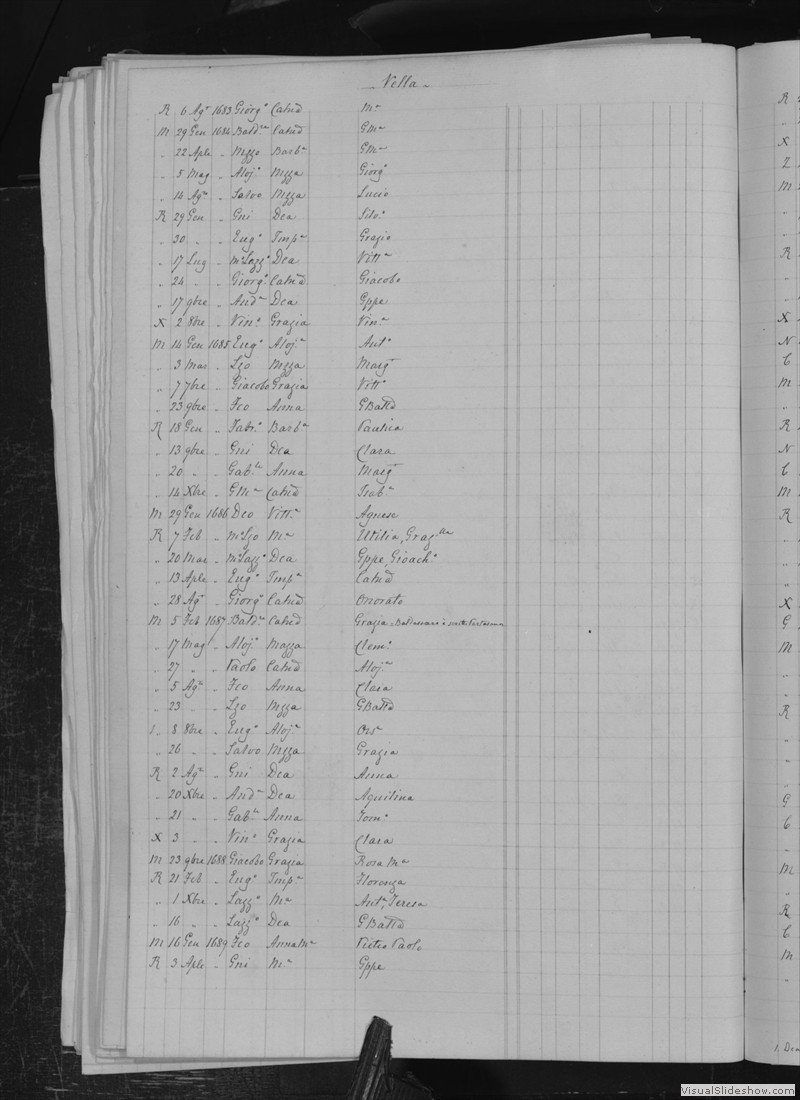 - Vella -
R 6 Agto 1683 Giorgo Catnd Ma
M 29 Gen 1684 Baldre Catnd GMa
„ 22 Aple „ Mzzo Barba GMa
„ 5 Mag „ Alojo Mzza Giorgo
„ 14 Agto „ Salvo Mzza Lucio
R 29 Gen „ Gni Dea Silvo
„ 30 „ „ Eugo Impa Grazio
„ 17 Lug „ Mo Lazzo Dea Vitta
„ 24 „ „ Giorgo Catnd Giacobo
„ 17 9bre „ Anda Dea Gppe
X 2 8bre „ Vino Grazia Vina
M 14 Gen 1685 Eugo Aloja Anto
„ 3 Mar „ Lzo Mzza Margt
„ 7 7bre „ Giacobo Grazia Vitto
„ 23 9bre „ Fco Anna GBatta
R 18 Gen „ Fabro Barba Paulica
„ 13 9bre „ Gni Dea Clara
„ 20 „ „ Gable Anna Margt
„ 14 Xbre „ GMa Catnd Isaba
M 29 Gen 1686 Deo Vitta Agnese
R 7 Feb „ Mo Lzo Ma Utilia, Grazlla
„ 20 Mar „ Mo Lazzo Dea Gppe, Gioacho
„ 13 Aple „ Eugo Impa Catnd
„ 28 Agto „ Giorgo Catnd Onorato
M 5 Feb 1687 Baldre Catnd Grazia
„ 17 Mag „ Alojo Mazza Clemo
„ 27 „ „ Paolo Catnd Aloja
„ 5 Agto „ Fco Anna Clara
„ 23 „ „ Lzo Mzza GBatta
„ 8 8bre „ Eugo Aloja Orsa
„ 26 „ „ Salvo Mzza Grazia
R 2 Agto „ Gni Dea Anna
„ 20 Xbre „ Anda Dea Aquilina
„ 21 „ „ Gable Anna Tomo
X 3 „ „ Vino Grazia Clara
M 23 9bre 1688 Giacobo Grazia Rosa Ma
R 21 Feb „ Eugo Impa Florenza
„ 1 Xbre „ Lazzo Ma Anta, Teresa
„ 16 „ „ Lazzo Dea GBatta
M 16 Gen 1689 Fco Anna Ma Pietro Paolo
R 3 Aple „ Gni Ma Gppe
VisualSlideshow.com